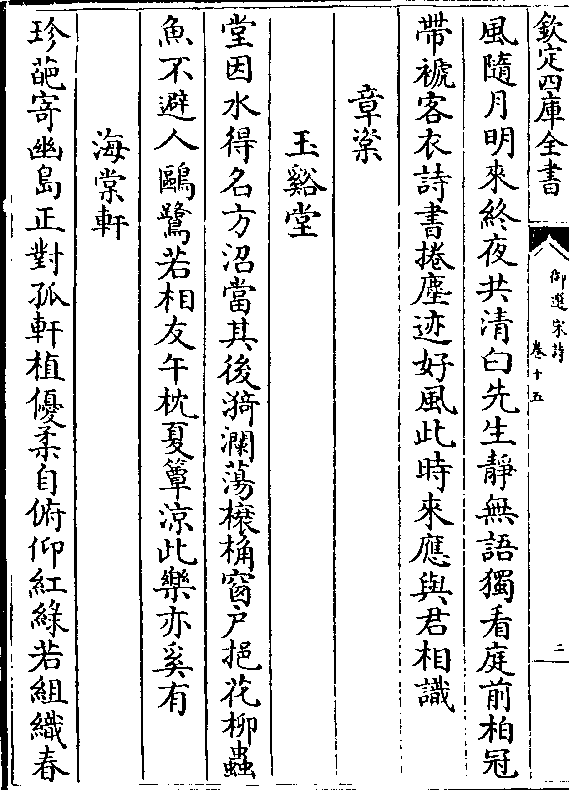 欽定四庫全書
御選宋詩
卷十五
二
風隨月明來終夜共清白先生靜無語獨看庭前柏冠
帶褫客衣詩書捲塵迹好風此時來應與君相識
章楶
玉谿堂
堂因水得名方沼當其後漪瀾蕩榱桷窗户挹花柳蟲
魚不避人鷗鷺若相友午枕夏簟涼此樂亦奚有
海棠軒
珍葩寄幽島正對孤軒植優柔自俯仰紅綠若組織春